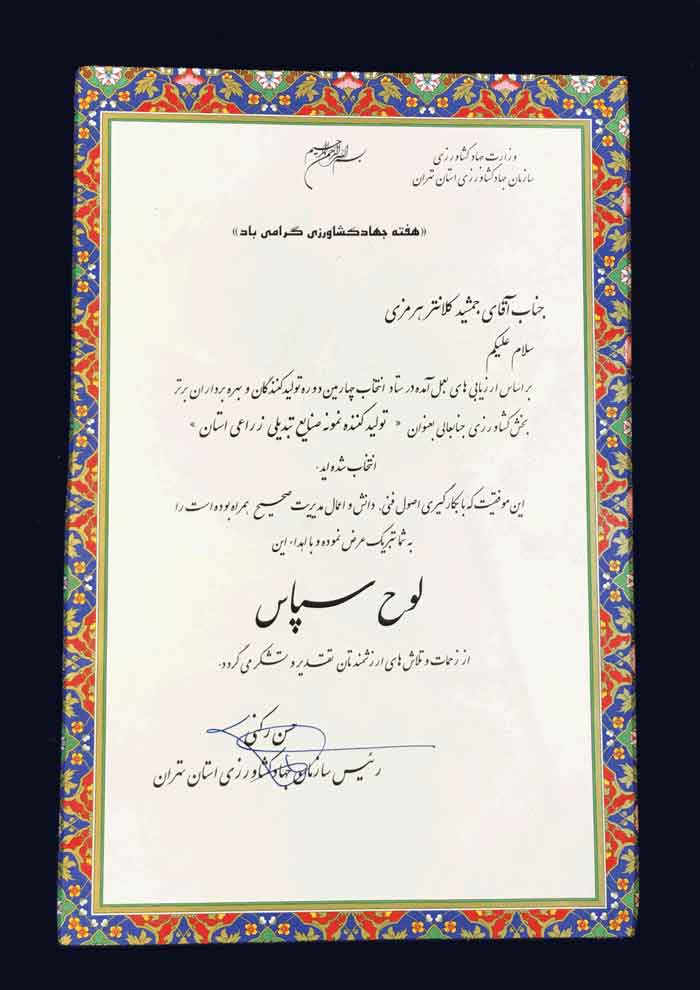 بسم الله الرحمن الرحیم
وزارت جهاد کشاورزی
سازمان جهاد کشاورزی استان تهران
«هفته جهادکشاورزی گرامی باد»
جناب آقای جمشید کلانتر هرمزی
سلام علیکم
بر اساس ارزیابی های بعمل آمده در ستاد انتخاب چهارمین دوره تولیدکنندگان و بهره برداران برتر
بخش کشاورزی جنابعالی بعنوان « تولید کننده نمونه صنایع تبدیلی زراعی استان »
انتخاب شده اید.
این موفقیت که با بکارگیری اصول فنی، دانش و اعمال مدیریت صحیح همراه بوده است را
به شما تبریک عرض نموده و با اهداء این
لوح سپاس
از زحمات و تلاش های ارزشمندتان تقدیر و تشکر می گردد.
حسن رکنی
رئیس سازمان جهاد کشاورزی استان تهران